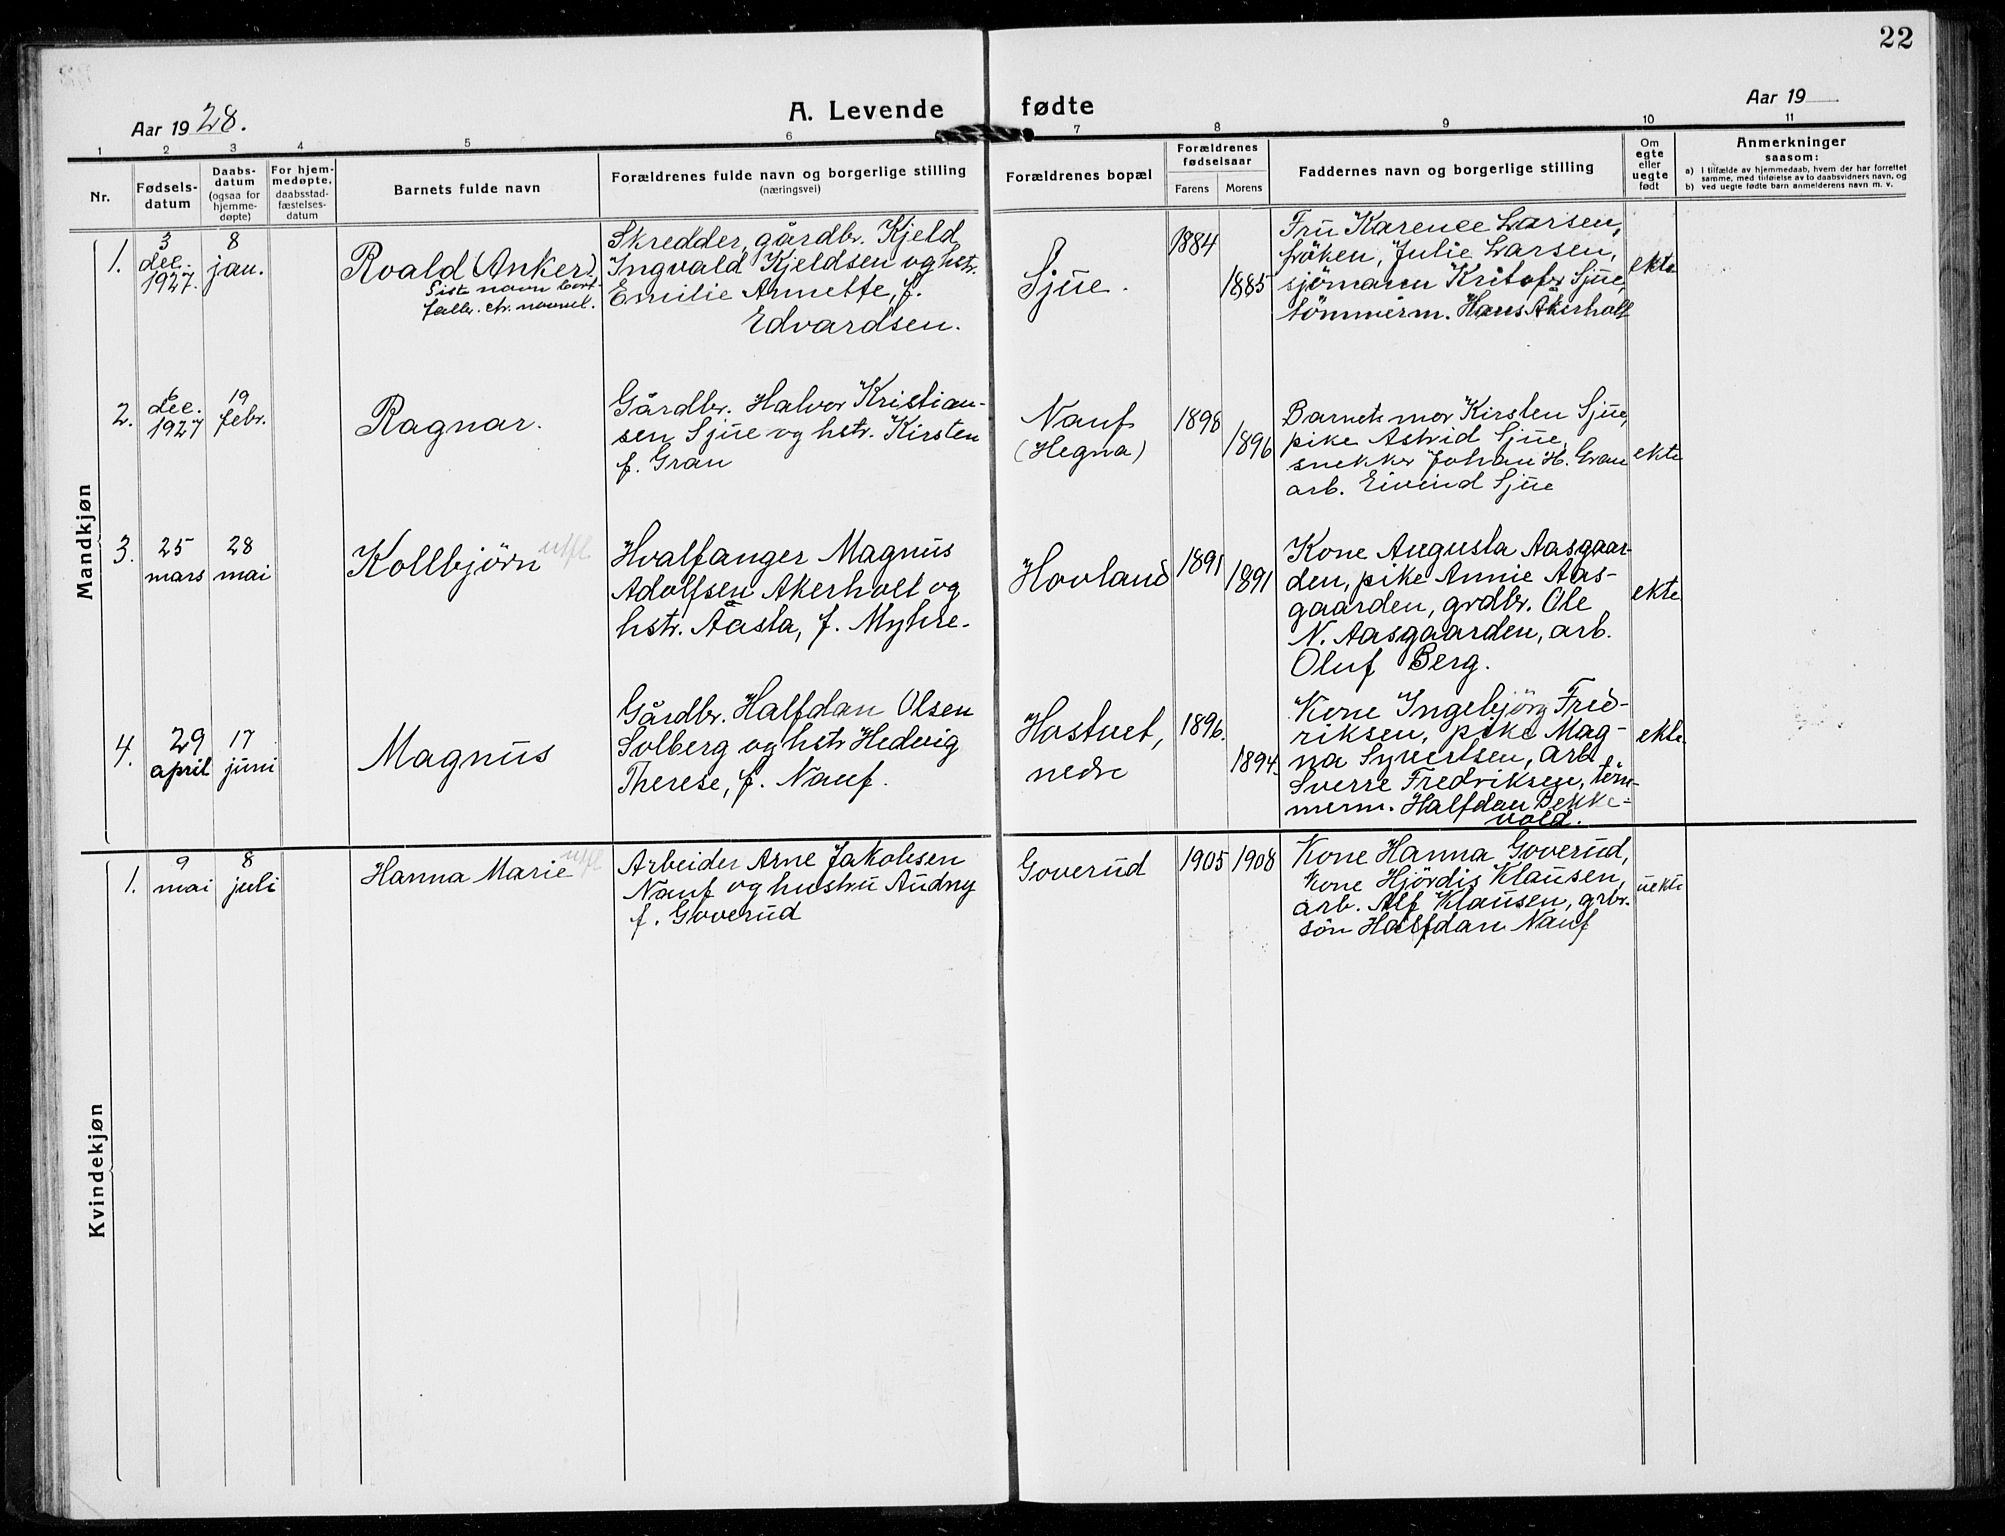 22
Aar 1928.
A. Levende fødte
Aar 19
1 2 3 4 5 6 7 8 9 10 11
Nr.
Fødsels-
datum
Daabs-
datum
(ogsaa for
hjemme-
døpte)
For hjem-
medøpte,
daabsstad-
fæstelses-
datum
Barnets fulde navn
Forældrenes fulde navn og borgerlige stilling
(næringsvei)
Forældrenes bopæl
Forældrenes
fødselsaar
Farens Morens
Faddernes navn og borgerlige stilling
Om
egte
eller
uegte
født
Anmerkninger
saasom:
a) I tilfælde av hjemmedaab, hvem der har forrettet
samme, med tilføielse av to daabsvidners navn, og
b) ved uegte fødte barn anmelderens navn m. v.
Mandkjøn
1.
3
dec.
1927.
8
jan.
Roald (Anker).
Siste navn bort-
faller
Skredder, gårdbr. Kjeld
Ingvald Kjeldsen og hstr.
Emilie Annette, f.
Edvardsen.
Sjue.
1884
1885
Fru Karence Larsen,
Løken, Julie Larsen,
sjömann Kristofer Sjue,
tömmerm. Hans Akerholt
ekte
2.
6
dec.
1927
19
febr.
Ragnar.
Gårdbr. Halvor Kristian-
sen Sjue og hstr. Kirsten
f. Gran
Nauf
(Hegna)
1898
1896
Barnets mor Kirsten Sjue,
pike Astrid Sjue,
snekker Johan H. Gran
arb. Eivind Sjue
ekte
3.
25
mars
28
mai
Kollbjørn utfl
Hvalfanger Magnus
Adolfsen Akerholt og
hstr. Aasta, f. Myhre.
Hovland
1891
1891
Kone Augusta Aasgaar-
den, pike Annie Aas-
gaarden, grdbr. Ole
N. Aasgaarden, arb.
Oluf Berg.
ekte
4.
29
april
17
juni
Magnus
Gårdbr. Halfdan Olsen
Solberg og hstr Hedvig
Therese, f. Nauf.
Hostvet,
nedre
1896.
1894.
Kone Ingebjörg Fred-
riksen, pike Mag-
na Syvertsen, arb.
Sverre Fredriksen, töm-
merm. Halfdan Bekke-
vold.
ekte
Kvindekjøn
1.
9
mai
8
juli
Hanna Marie utfl
Arbeider Arne Jakobsen
Nauf og hustru Audny
f. Goverud
Goverud
1905
1908
Kone Hanna Goverud,
Kone Hjördis Klausen,
arb. Alf Klausen, grbr.
sön Halfdan Nauf
uekte